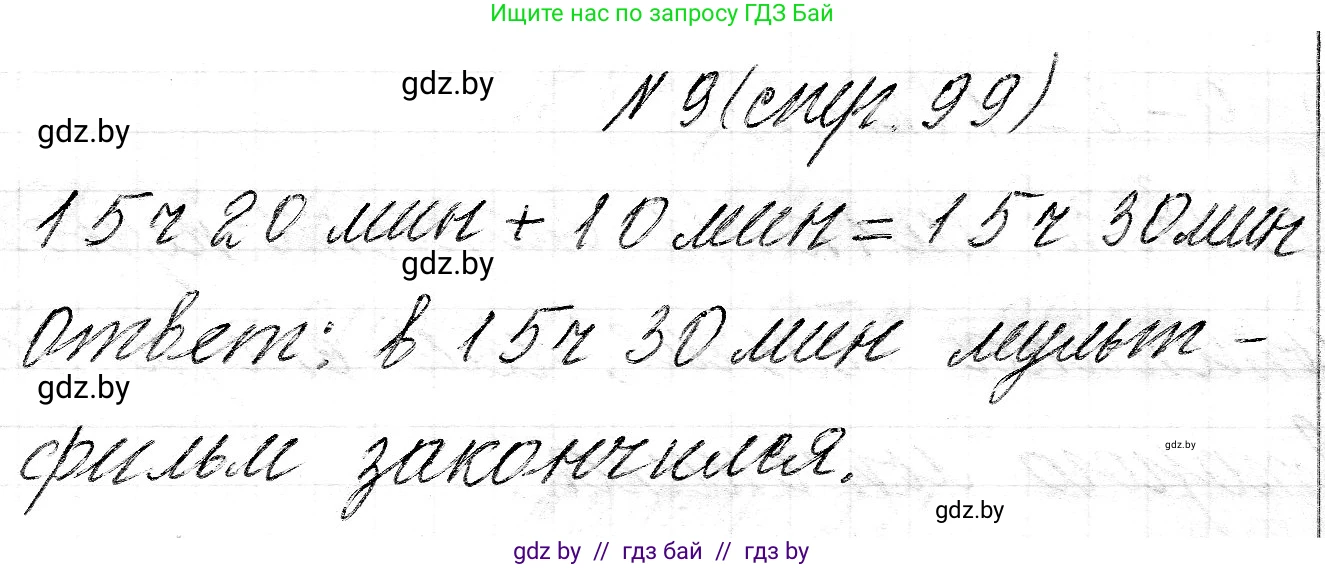 Ищите нас по запросу ГДЗ Бай
gdz.by
№ 9 (стр. 99)
gdz.by
15 ч 20 мин + 10 мин = 15 ч 30 мин
gdz.by
Ответ: в 15 ч 30 мин мульт-
gdz.by
фильм закончился.
gdz.by
gdz.by
gdz by // гдз бай // гдз by